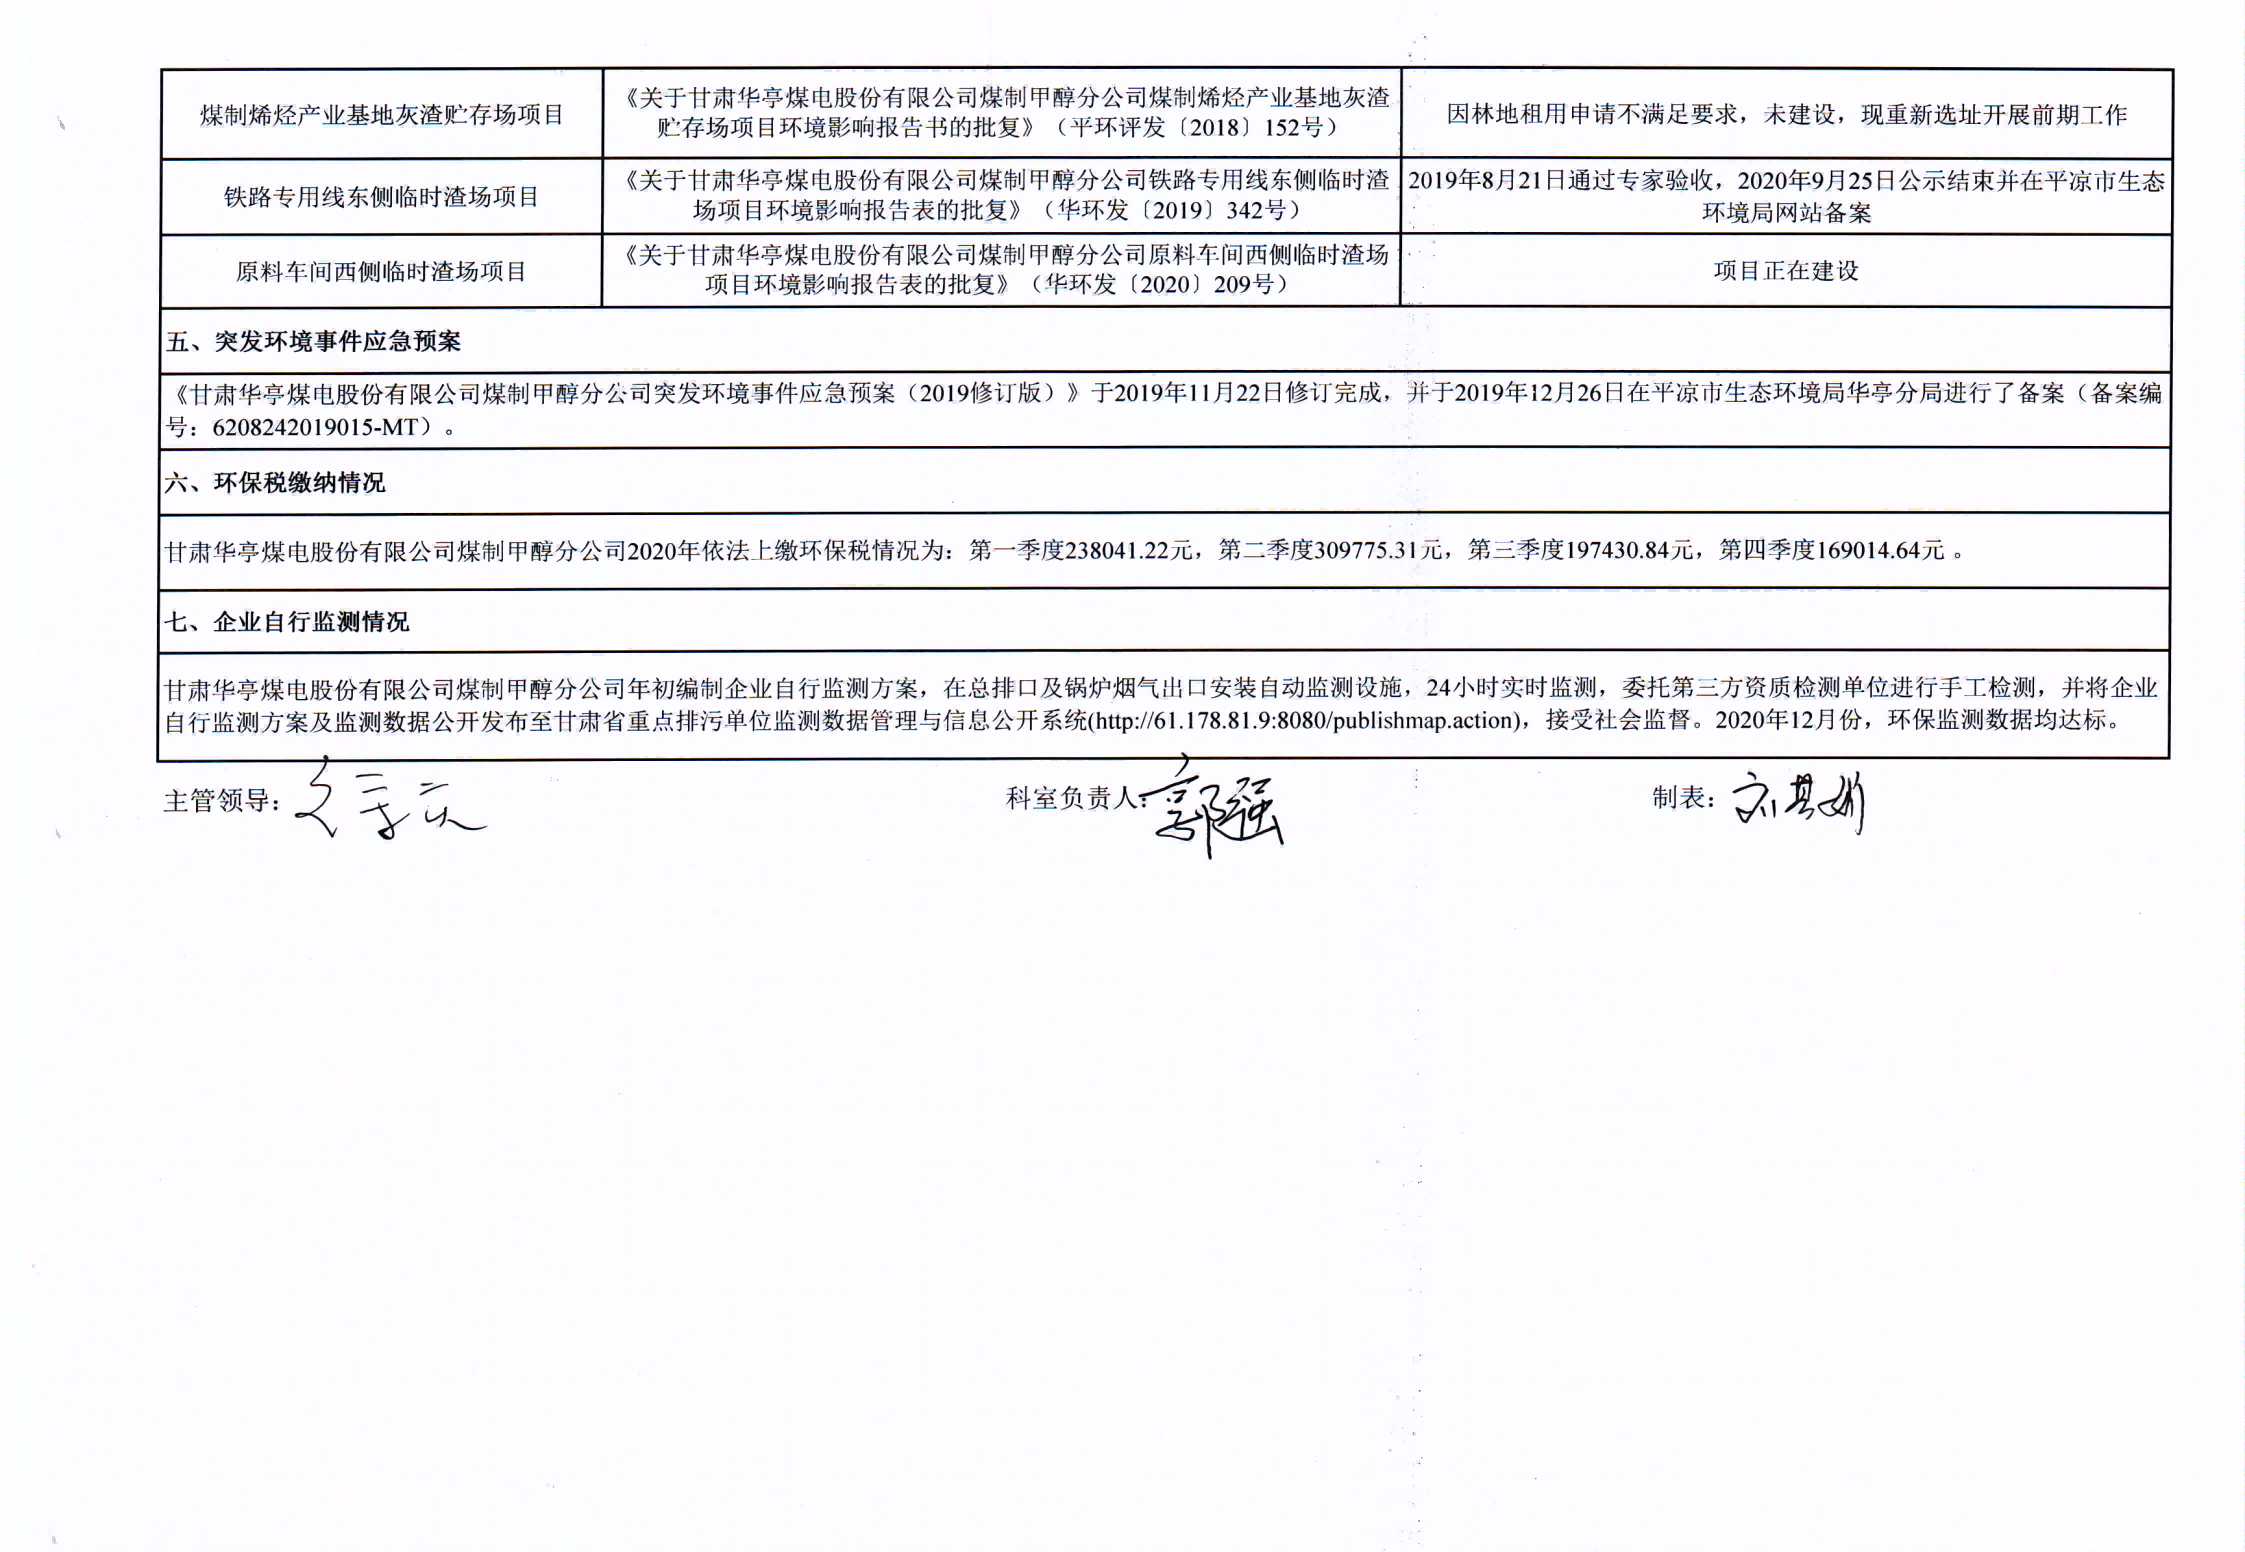 煤制烯烃产业基地灰渣贮存场项目
《关于甘肃华亭煤电股份有限公司煤制甲醇分公司煤制烯烃产业基地灰渣
贮存场项目环境影响报告书的批复》（平环评发〔2018〕152号）
因林地租用申请不满足要求，未建设，现重新选址开展前期工作
铁路专用线东侧临时渣场项目
《关于甘肃华亭煤电股份有限公司煤制甲醇分公司铁路专用线东侧临时渣
场项目环境影响报告表的批复》（华环发〔2019〕342号）
2019年8月21日通过专家验收，2020年9月25日公示结束并在平凉市生态
环境局网站备案
原料车间西侧临时渣场项目
《关于甘肃华亭煤电股份有限公司煤制甲醇分公司原料车间西侧临时渣场
项目环境影响报告表的批复》（华环发〔2020〕209号）
项目正在建设
五、突发环境事件应急预案
《甘肃华亭煤电股份有限公司煤制甲醇分公司突发环境事件应急预案（2019修订版）》于2019年11月22日修订完成，并于2019年12月26日在平凉市生态环境局华亭分局进行了备案（备案编
号：6208242019015-MT）。
六、环保税缴纳情况
甘肃华亭煤电股份有限公司煤制甲醇分公司2020年依法上缴环保税情况为：第一季度238041.22元，第二季度309775.31元，第三季度197430.84元，第四季度169014.64元 。
七、企业自行监测情况
甘肃华亭煤电股份有限公司煤制甲醇分公司年初编制企业自行监测方案，在总排口及锅炉烟气出口安装自动监测设施，24小时实时监测，委托第三方资质检测单位进行手工检测，并将企业
自行监测方案及监测数据公开发布至甘肃省重点排污单位监测数据管理与信息公开系统(http://61.178.81.9:8080/publishmap.action)，接受社会监督。2020年12月份，环保监测数据均达标。
主管领导：
科室负责人：郭强
制表：